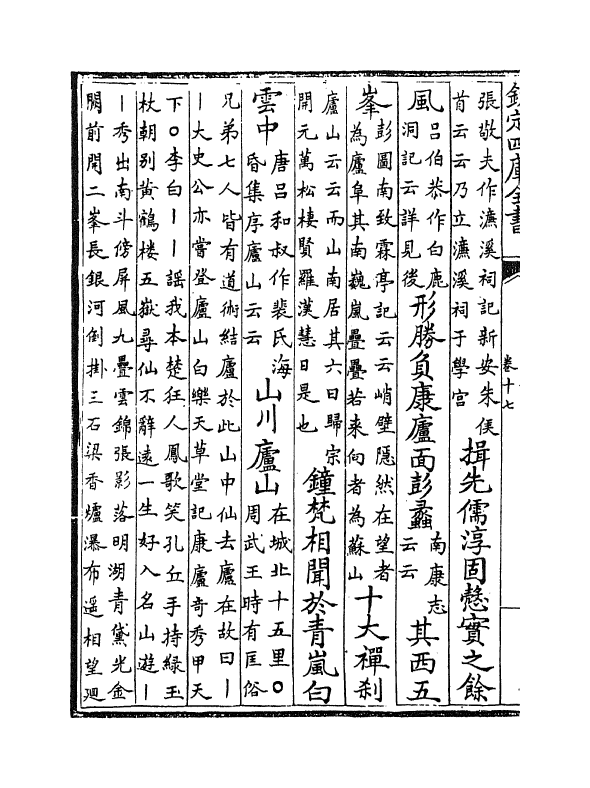 欽定四庫全書
卷十七
張敬夫作濓溪祠記新安朱侯
首云云乃立濓溪祠于學宫
揖先儒淳固慤實之餘
風
吕伯恭作白鹿
洞記云詳見後
形勝負康廬面彭蠡
南康志
云云
其西五
峯
彭圖南致霖亭記云云峭壁隱然在望者
為廬阜其南巍嵐疊疊若来向者為蘇山
十大禪刹
廬山云云而山南居其六曰歸宗
開元萬松棲賢羅漢慧日是也
鐘梵相聞於青嵐白
雲中
唐吕和叔作裴氏海
昏集序廬山云云
山川廬山
在城北十五里○
周武王時有匡俗
兄弟七人皆有道術結廬於此山中仙去廬在故曰丨
丨大史公亦嘗登廬山白樂天草堂記康廬竒秀甲天
下○李白丨丨謡我本楚狂人鳳歌笑孔丘手持緑玉
杖朝别黄鶴樓五嶽尋仙不辭逺一生好入名山遊丨
丨秀出南斗傍屏風九疊雲錦張影落明湖青黛光金
闕前開二峯長銀河倒掛三石梁香爐瀑布遥相望廻